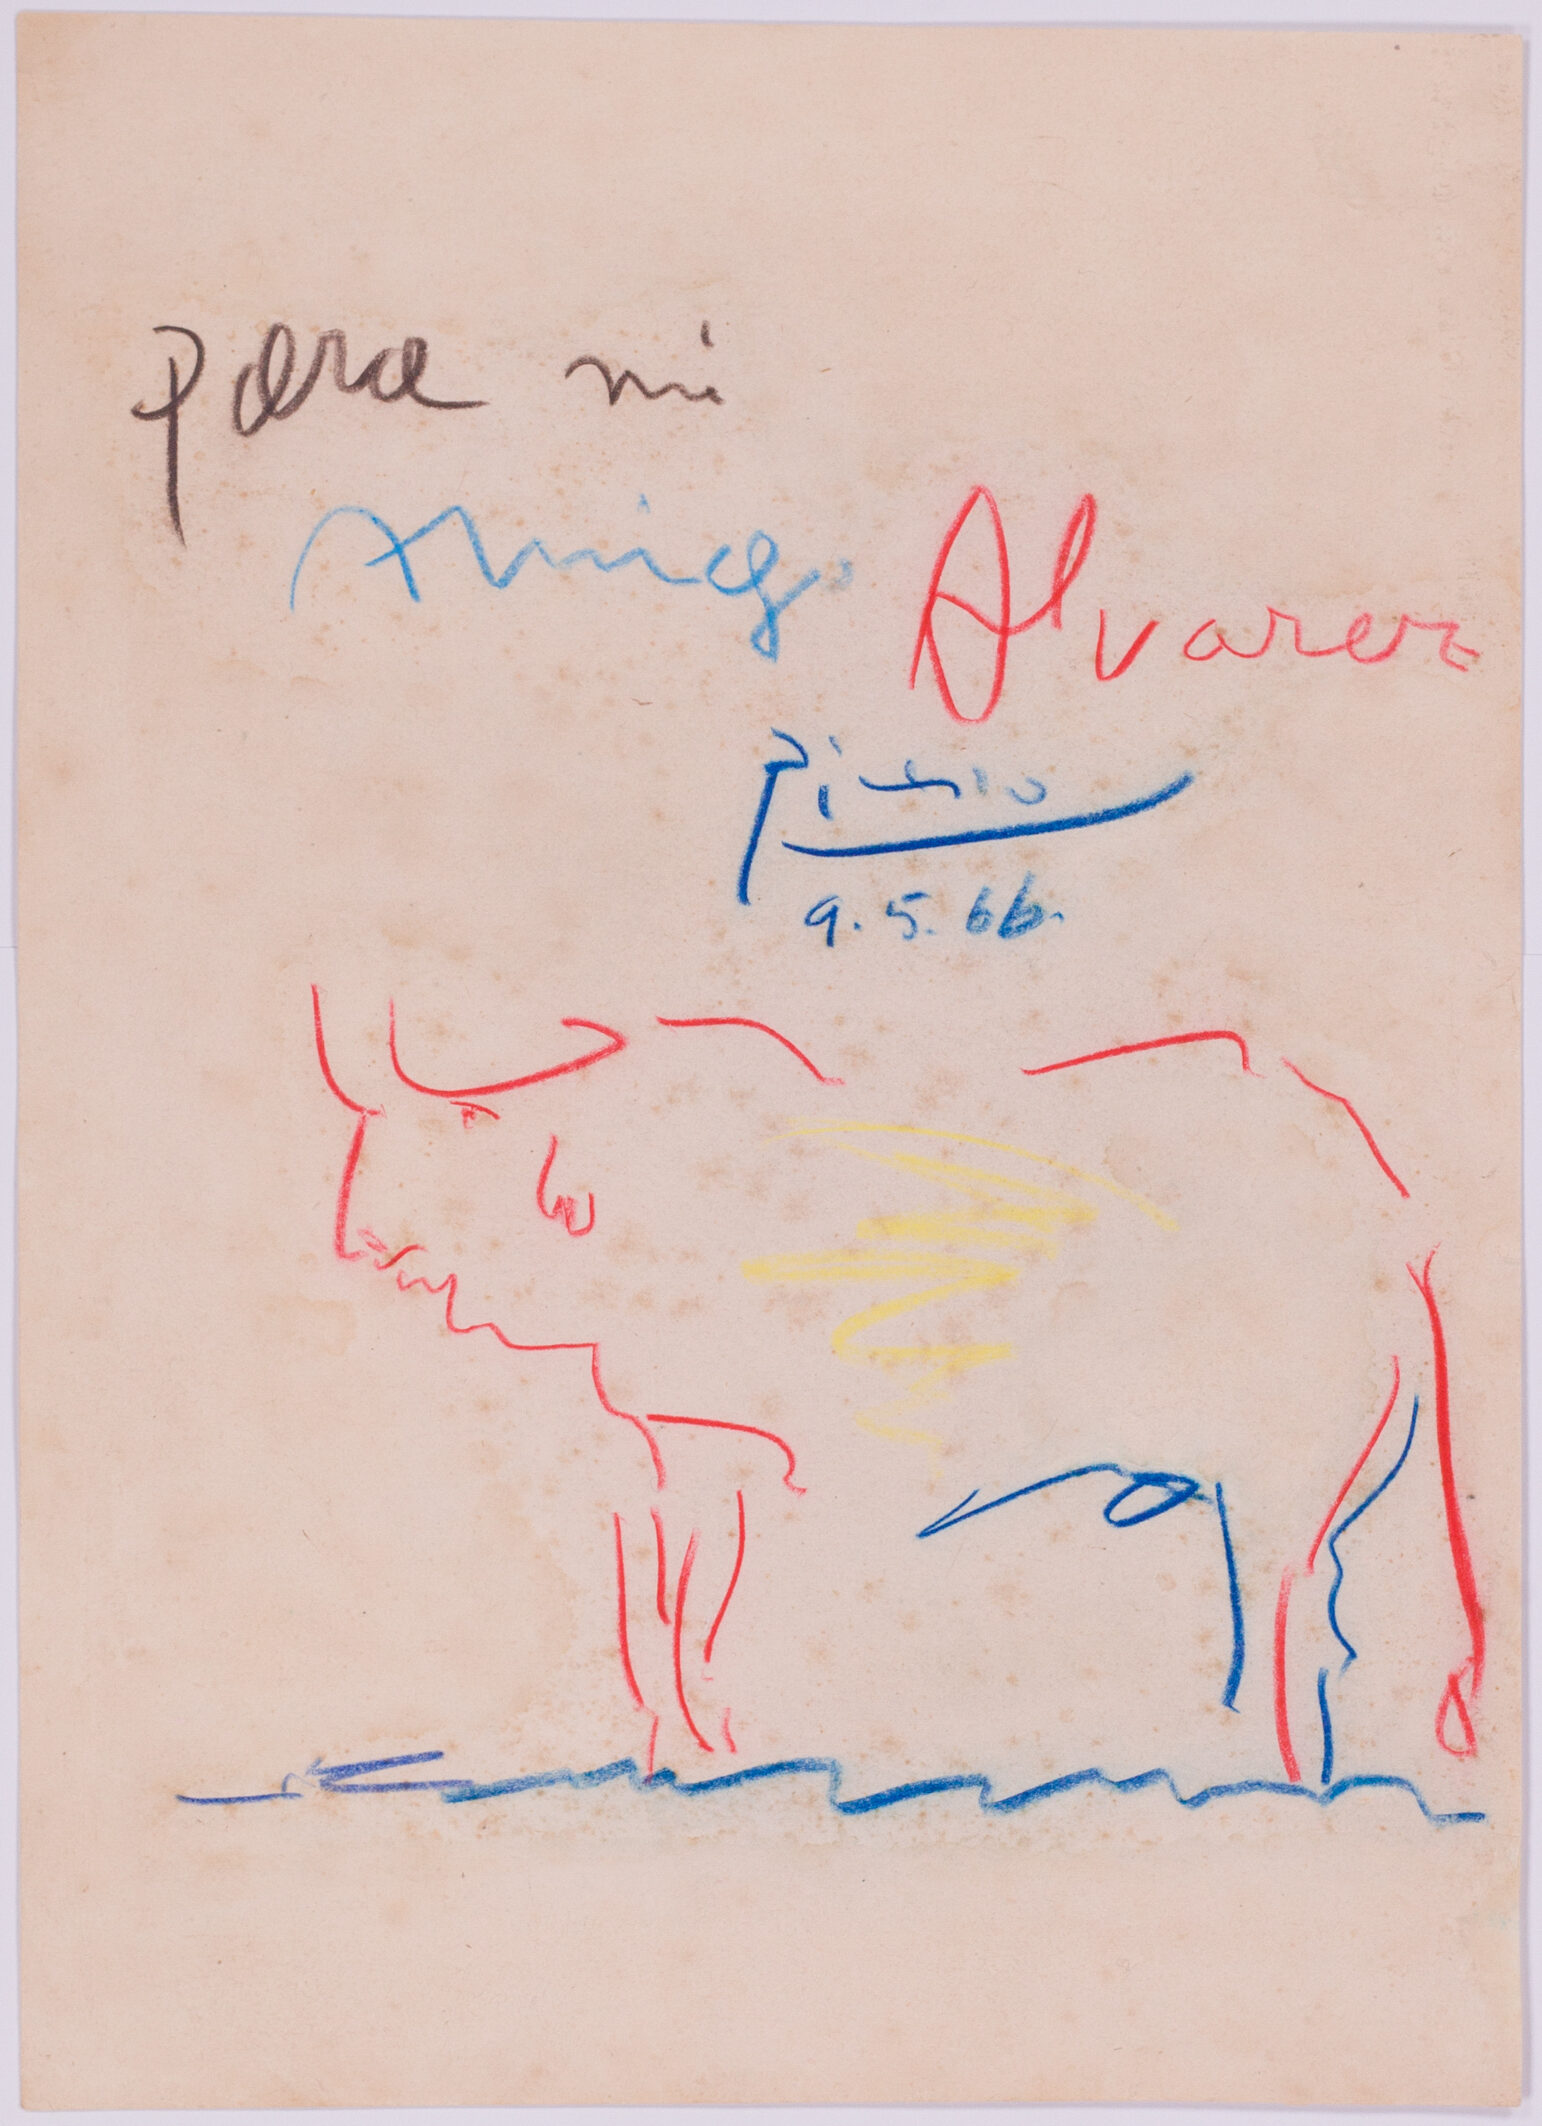 Para mi
Amigo Alvarez
Picasso
9.5.66.